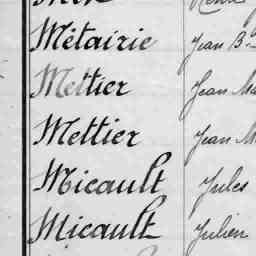 Métairie Jean B.
Mettier Jean Ma
Mettier Jean M
Micault Jules
Micault Julien